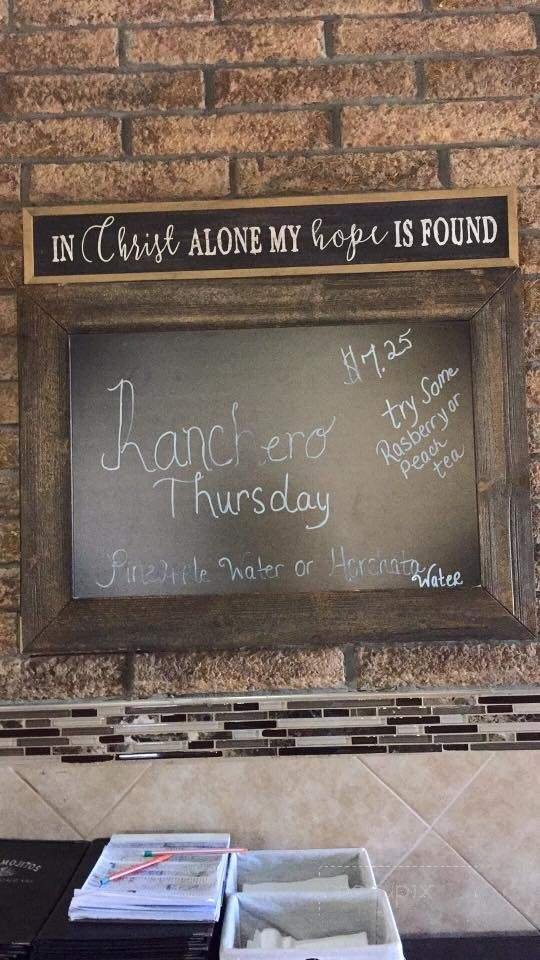 IN Christ ALONE MY hope IS FOUND
$7.25
Ranchero
Thursday
try Some
Rasberry or
Peach
tea
Pineapple Water or Horchata
Water
MOJITOS